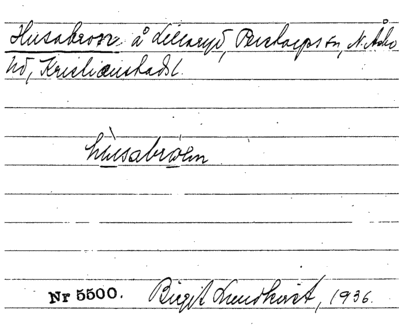 Husabroar å Lillaryd, Perstorps sn, N. Åsbo
hd, Kristianstads l.
husabroen
Nr 5500. Birgit Lundkvist, 1936.